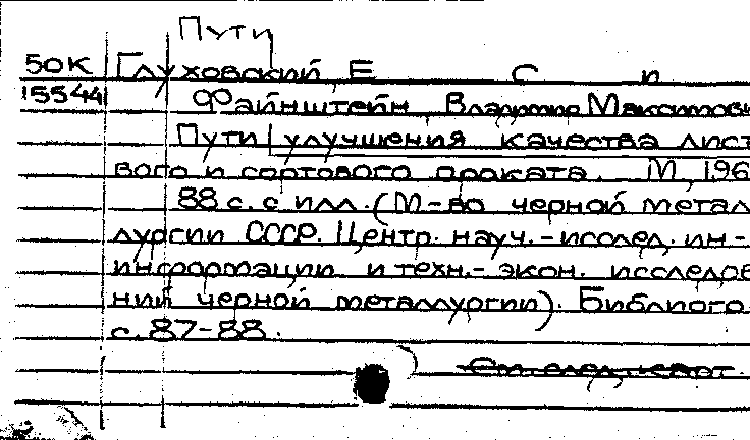 Пути
50К Глуховский Е С и
15544 Файнштейн, Владимир Максимови
Пути улучшения качества лист
вого и сортового проката. М, 196
88 с. с илл. (М-во черной метал
лургии СССР. Центр. науч.-исслед. ин-
информации и техн.- экон. исследов
ний черной металлургии). Библиогр
с. 87-88.
См. след. карт.